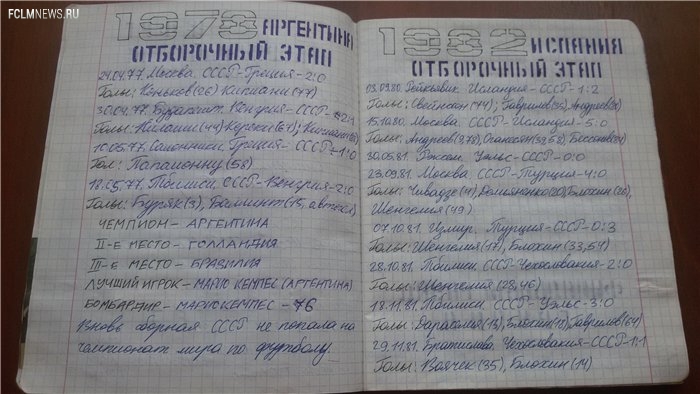 FCLMNEWS.RU
1978 АРГЕНТИНА
ОТБОРОЧНЫЙ ЭТАП
24.04.77. Москва. СССР-Греция-2:0
Голы: Коньков(26) Кипиани(47)
30.04.77. Будапешт. Венгрия-СССР-2:1
Голы: Нилаши(44) Керекеш(67); Кипиани
10.05.77. Салоники. Греция-СССР-1:0
Гол: Папаионну(58)
18.05.77. Тбилиси. СССР-Венгрия-2:0
Голы: Буряк(3), Балинт(15, автогол)
ЧЕМПИОН-АРГЕНТИНА
II-Е МЕСТО-ГОЛЛАНДИЯ
III-Е МЕСТО-БРАЗИЛИЯ
ЛУЧШИЙ ИГРОК-МАРИО КЕМПЕС (АРГЕНТИНА)
БОМБАРДИР-МАРИО КЕМПЕС-76
Вновь сборная СССР не попала на
чемпионат мира по футболу.
1982 ИСПАНИЯ
ОТБОРОЧНЫЙ ЭТАП
03.09.80. Рейкьявик. Исландия-СССР-1:2
Голы: Свейнсон(74); Гаврилов(35), Андреев
15.10.80. Москва. СССР-Исландия-5:0
Голы: Андреев(9,78), Оганесян(39,58), Бессонов
30.05.81. Рэксем. Уэльс-СССР-0:0
23.09.81. Москва СССР-Турция-4:0
Голы: Чивадзе(4), Демьяненко(20), Блохин(26),
Шенгелия(49)
07.10.81. Измир. Турция-СССР-0:3
Голы: Шенгелия(17), Блохин(33,54)
28.10.81. Тбилиси. СССР-Чехословакия-2:0
Голы: Шенгелия(28,46)
18.11.81. Тбилиси. СССР-Уэльс-3:0
Голы: Дараселия(13), Блохин(18), Гаврилов(64)
29.11.81. Братислава. Чехословакия-СССР-1:1
Голы: Воячек(35), Блохин(14)